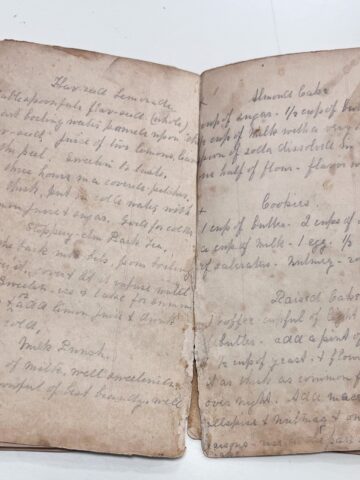 Flax-seed Lemonade
tablespoonfuls flax-seed (whole)
boiling water poured upon the
flax-seed juice of two lemons, leave
the peel. Sweeten to taste,
three hours in a covered pitcher,
thick, put in cold water with
lemon juice & sugar. Good for colds
Slippery-elm Bark Tea.
the bark into bits, pour boiling
it, cover, let it infuse until
Sweeten, ice & take for summer
add lemon juice & drink
cold.
Milk Punch.
of milk, well sweetened
of best brandy, well
Almond Cake
cup of sugar - 1/2 cup of
cup of milk with a very
spoon of soda dissolved in
one half of flour - flavor
Cookies.
1 cup of butter - 2 cups of
a cup of milk - 1 egg. 1/2
of salaratus. Nutmeg -
Raised Cake
coffee-cupful of light
butter - add a pint of
1/2 cup of yeast - & flour
it as thick as common
over night. Add mace
allspice & nutmeg & one
raisons -